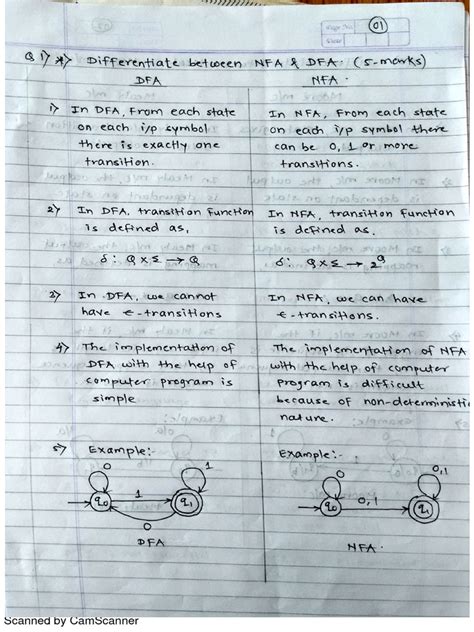 Page No.
01
Date
Q 1) *) Differentiate between NFA & DFA. (5-marks)
DFA
NFA.
1) In DFA, From each state
on each i/p symbol
there is exactly one
transition.
In NFA, From each state
on each i/p symbol there
can be 0, 1 or more
transitions.
2) In DFA, transition function
is defined as,
δ: Q × Σ → Q
In NFA, transition function
is defined as,
δ: Q × Σ → 2^Q
3) In DFA, we cannot
have ϵ-transitions
In NFA, we can have
ϵ-transitions.
4) The implementation of
DFA with the help of
computer program is
simple
The implementation of NFA
with the help of computer
Program is difficult
because of non-deterministic
nature.
5) Example:-
0
1
q0
1
q1
0
DFA
Example:-
0
0,1
q0
0,1
q1
NFA.
Scanned by CamScanner